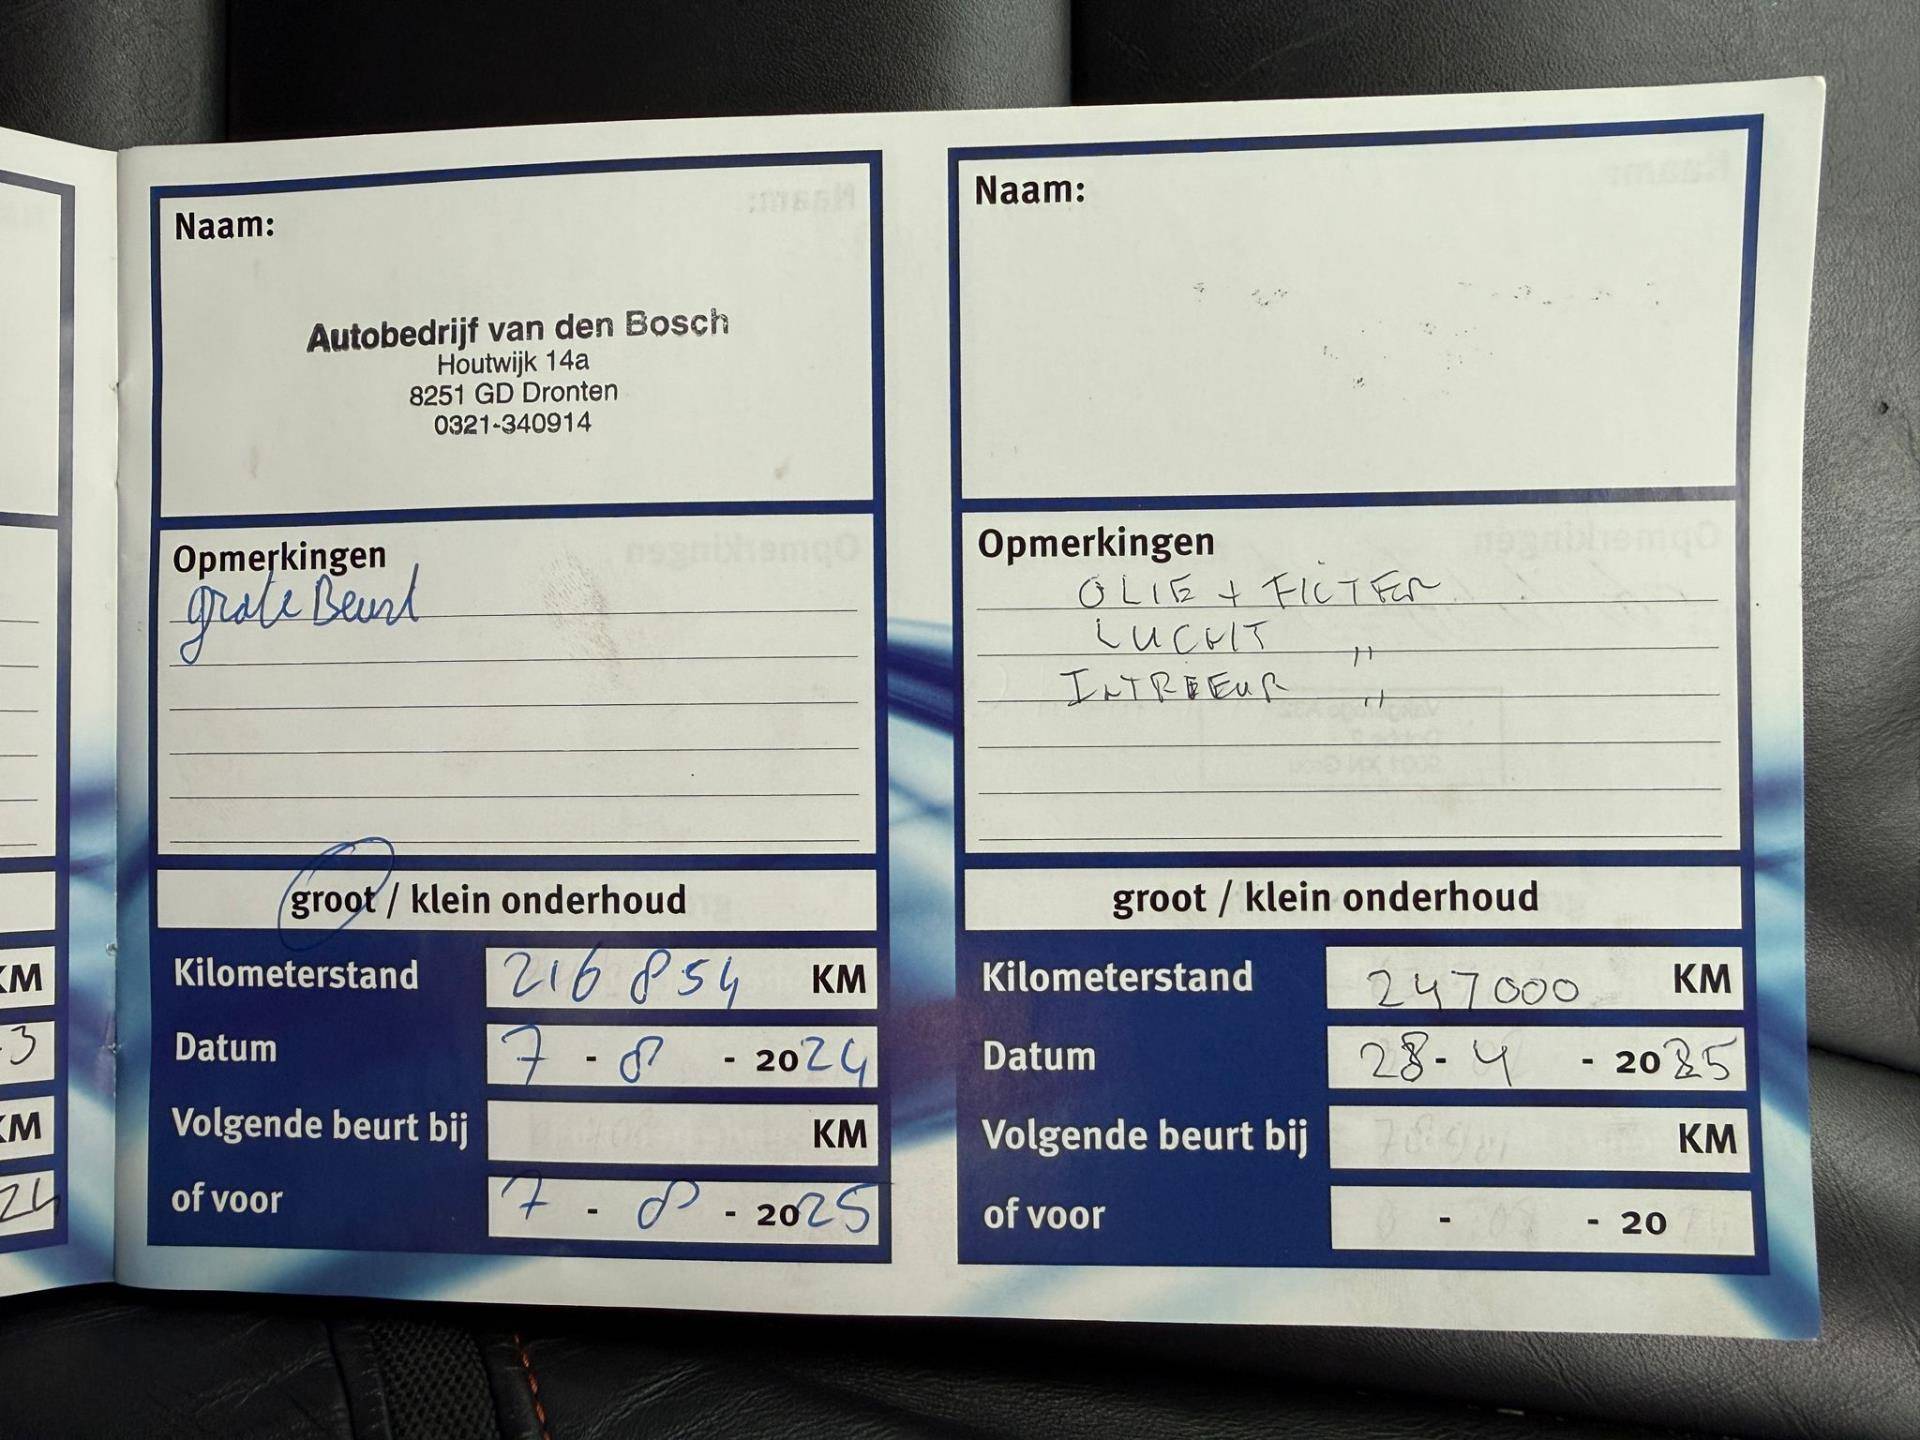 KM
3
KM
24
Naam:
Autobedrijf van den Bosch
Houtwijk 14a
8251 GD Dronten
0321-340914
Opmerkingen
grote Beurt
groot / klein onderhoud
Kilometerstand 216 854 KM
Datum 7 - 8 - 2024
Volgende beurt bij KM
of voor 7 - 8 - 2025
Naam:
Opmerkingen
OLIE + FILTER
LUCHT "
INTREEUR "
groot / klein onderhoud
Kilometerstand 247000 KM
Datum 28 - 4 - 2025
Volgende beurt bij KM
of voor - - 20